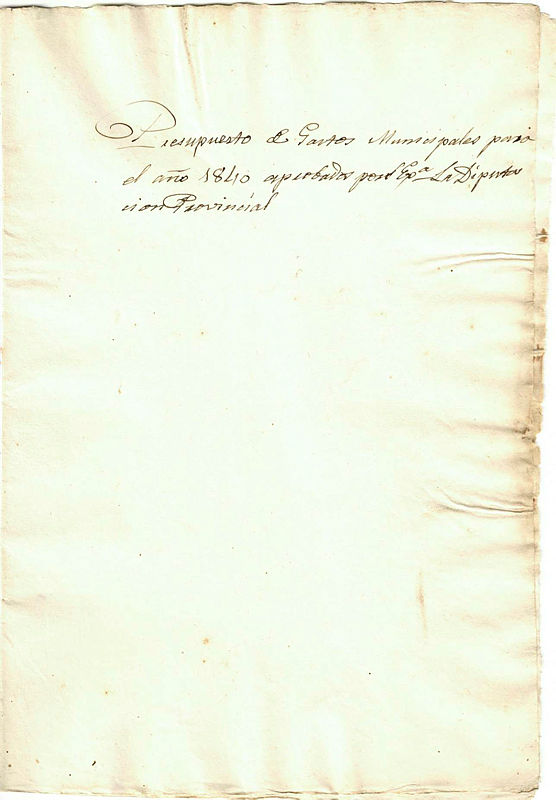 Presupuesto de Gastos Municipales para
el año 1840 aprobados por Exª La Diputa
cion Provincial